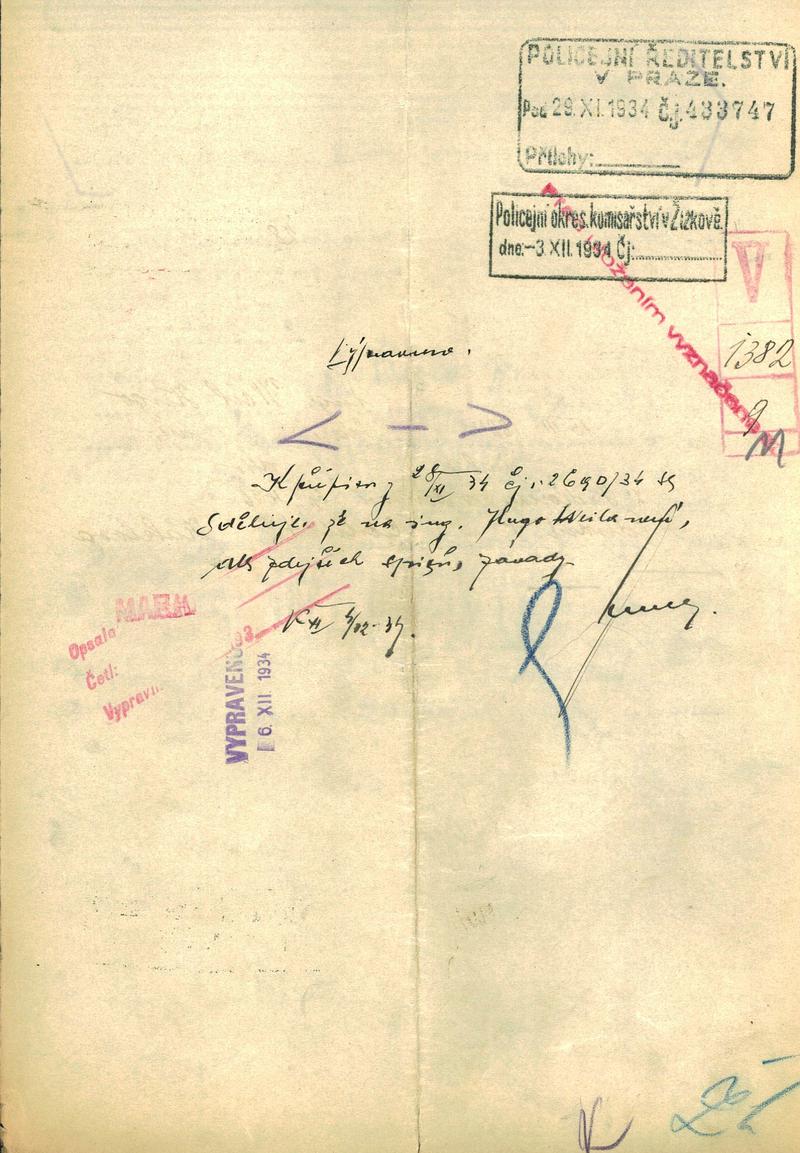 POLICEJNÍ ŘEDITELSTVÍ
V PRAZE.
Pod 29.XI.1934 Č.j. 433747
Přílohy:
Policejní okres. komisařství v Žižkově.
dne: -3.XII.1934 Čj:
V
1382
9
K přípisu z 28/XI 34 čj. 2690/34
sděluje, že na ing. Hugo Weila není,
dle zdejších spisů, závady
Opsala
Četl:
Vypravil
VYPRAVENO
6. XII 1934
K